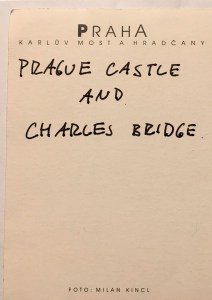 PRAHA
KARLŮV MOST A HRADČANY
PRAGUE CASTLE
AND
CHARLES BRIDGE
FOTO: MILAN KINCL